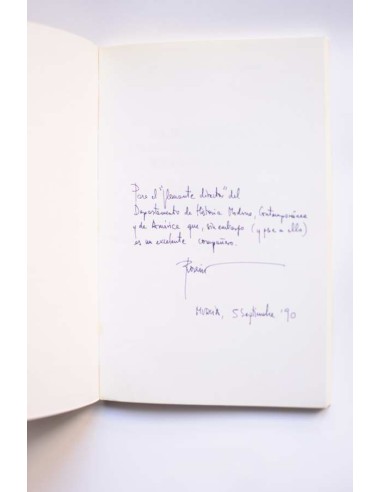 Para el "flamante director" del
Departamento de Historia Moderna, Contemporánea
y de América que, sin embargo (y pese a ello)
es un excelente compañero.
Murcia, 5 Septiembre '90